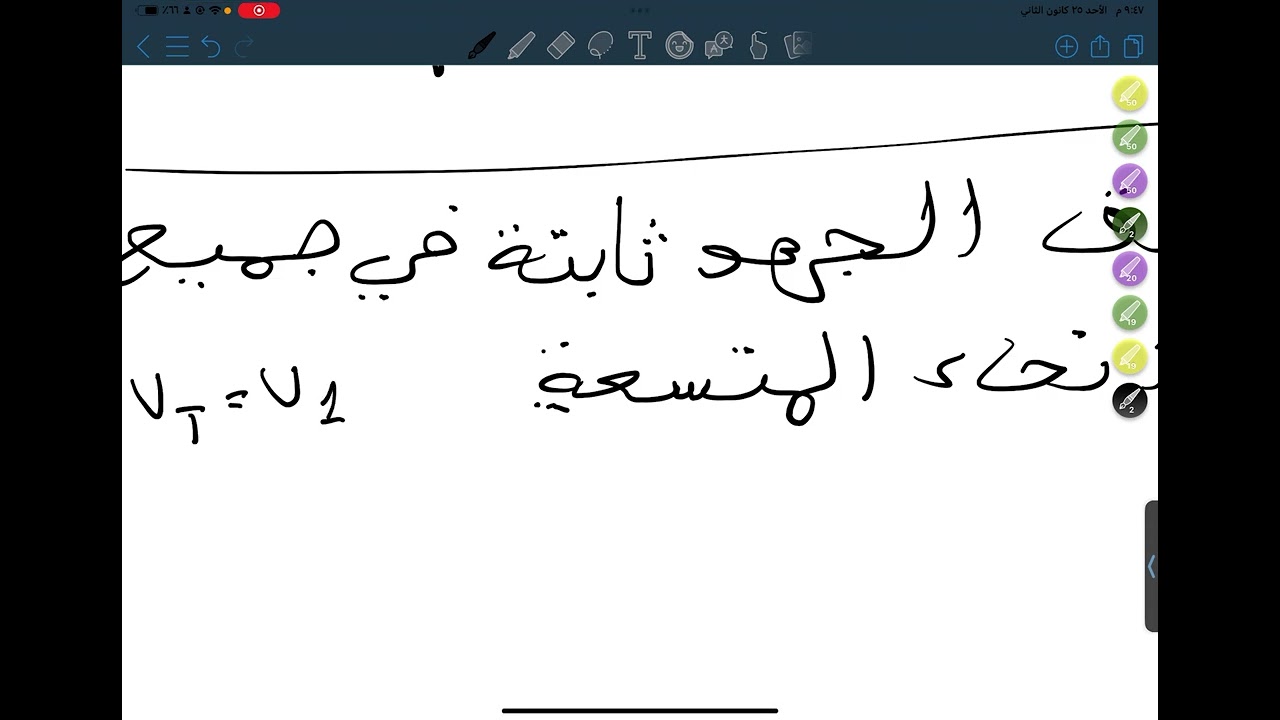 ٩:٤٧ م الأحد ٢٥ كانون الثاني
٪٦٦
الجهد ثابتة في جميع
المتسعة
V_T = V1
50
50
50
2
20
19
19
2